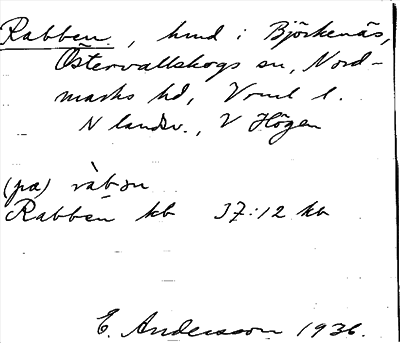 Rabben, hmd i Björkenäs,
Östervallskogs sn, Nord-
marks hd, Vrml l.
N landsv., V Högen
(pa) ràb·ən
Rabben kb 37:12 kb
E. Andersson 1936.